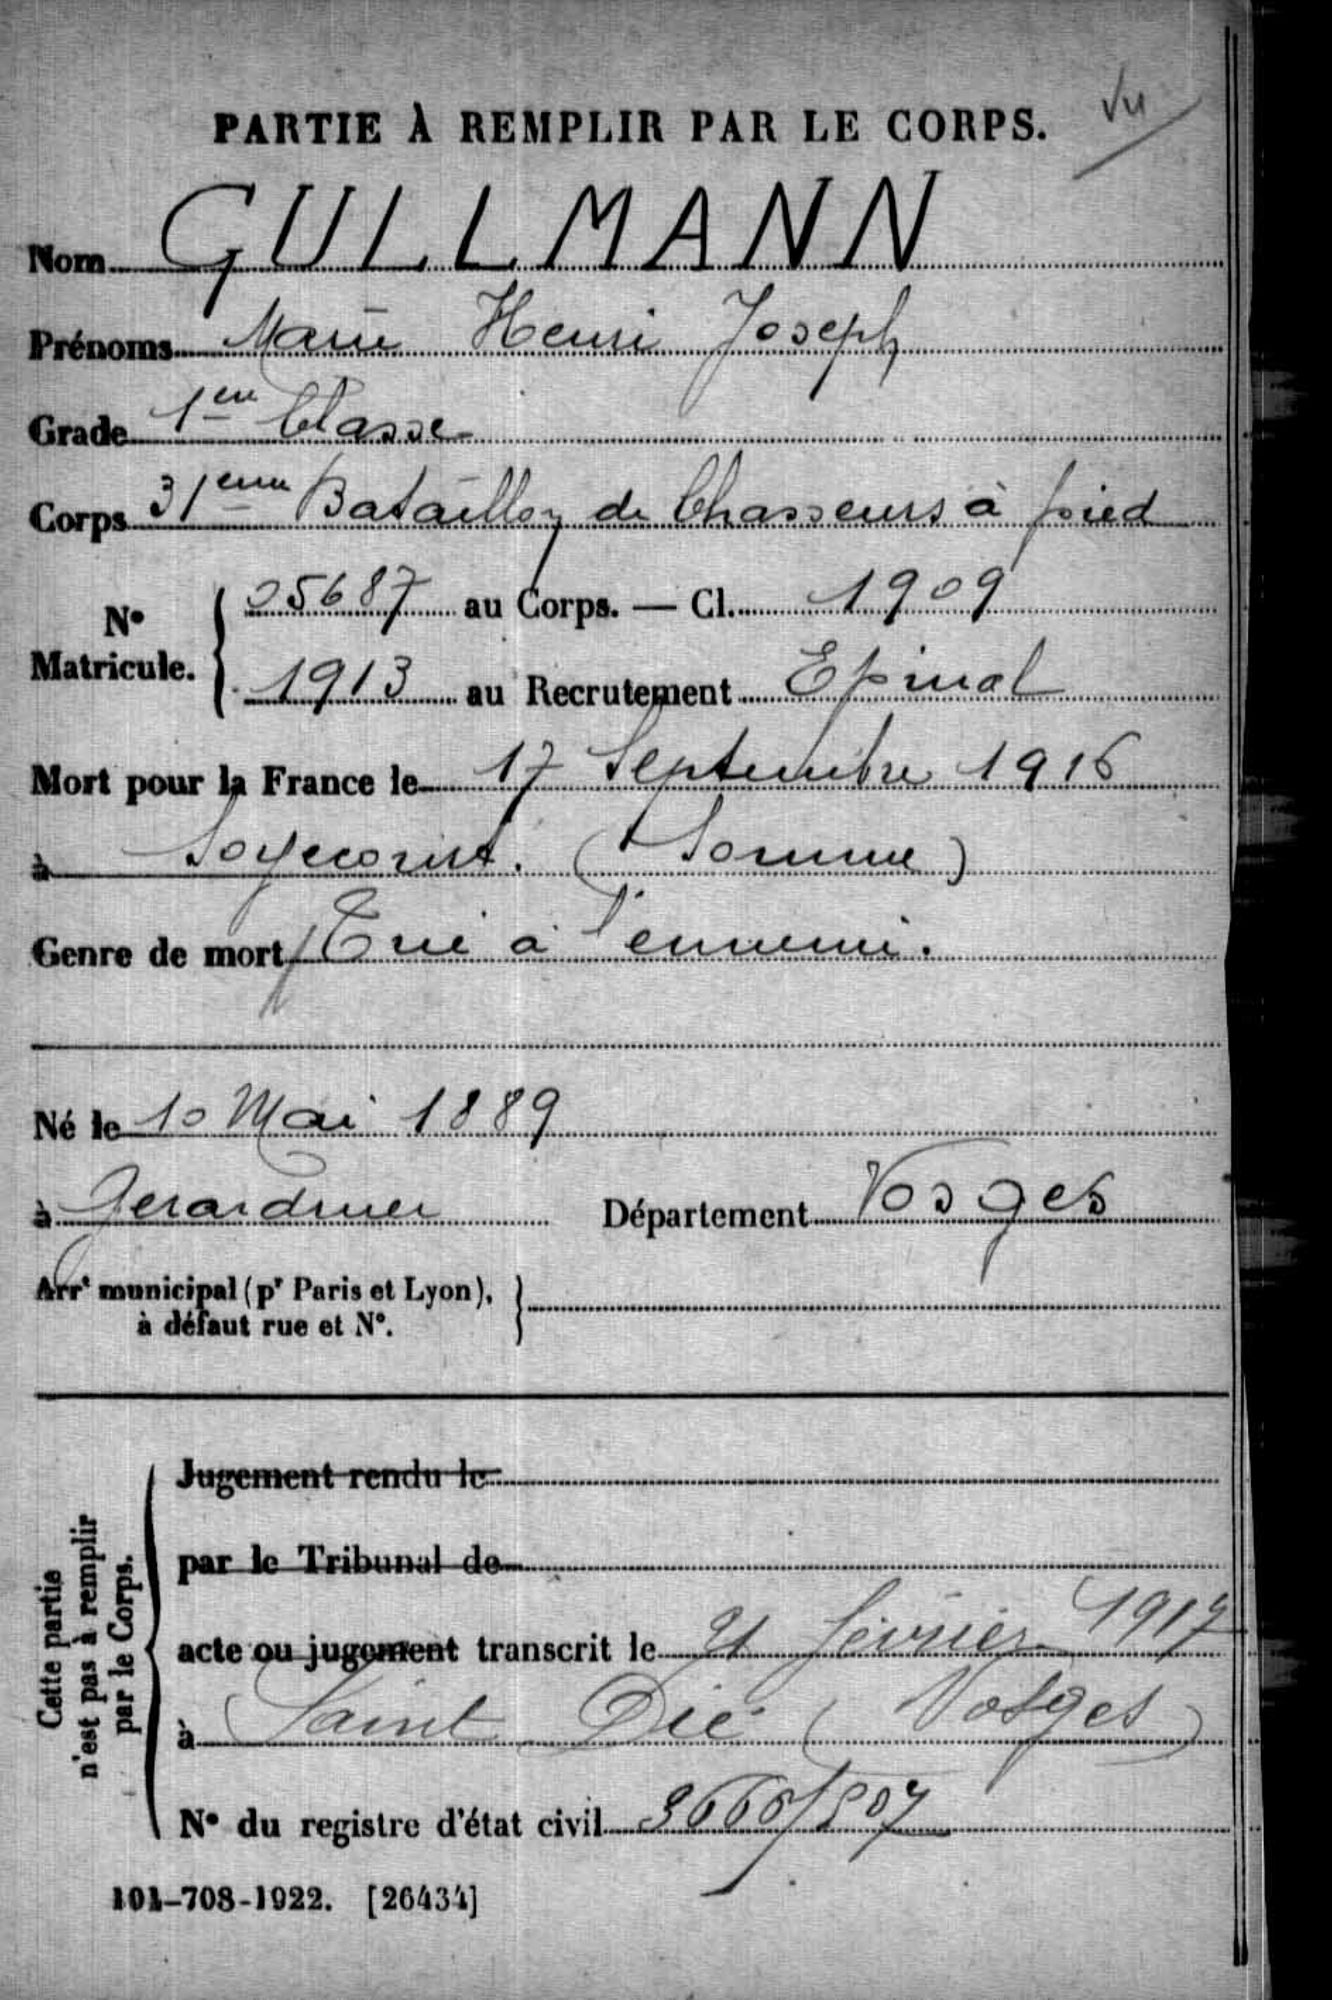 Vu
PARTIE À REMPLIR PAR LE CORPS.
Nom GULLMANN
Prénoms Marie Henri Joseph
Grade 1ere Classe
Corps 31eme Bataillon de Chasseurs à pied
No Matricule. { 05687 au Corps. — Cl. 1909
1913 au Recrutement Epinal
Mort pour la France le 17 Septembre 1916
à Soyecourt. (Somme)
Genre de mort Tué à l'ennemi.
Né le 10 Mai 1889
à Gerardmer Département Vosges
Arrt municipal (pr Paris et Lyon), }
à défaut rue et No.
Cette partie
n'est pas à remplir
par le Corps.
Jugement rendu le
par le Tribunal de
acte ou jugement transcrit le 21 février 1917
à Saint Dié (Vosges)
No du registre d'état civil
101-708-1922. [26434]